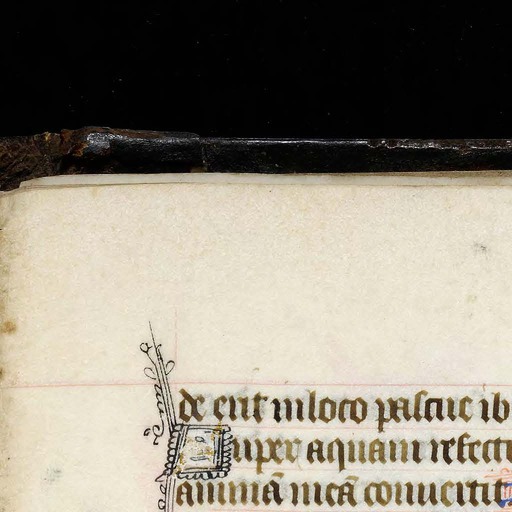 de erit in loco pascue ib
uiper aquam refecti
animā meā conuertit